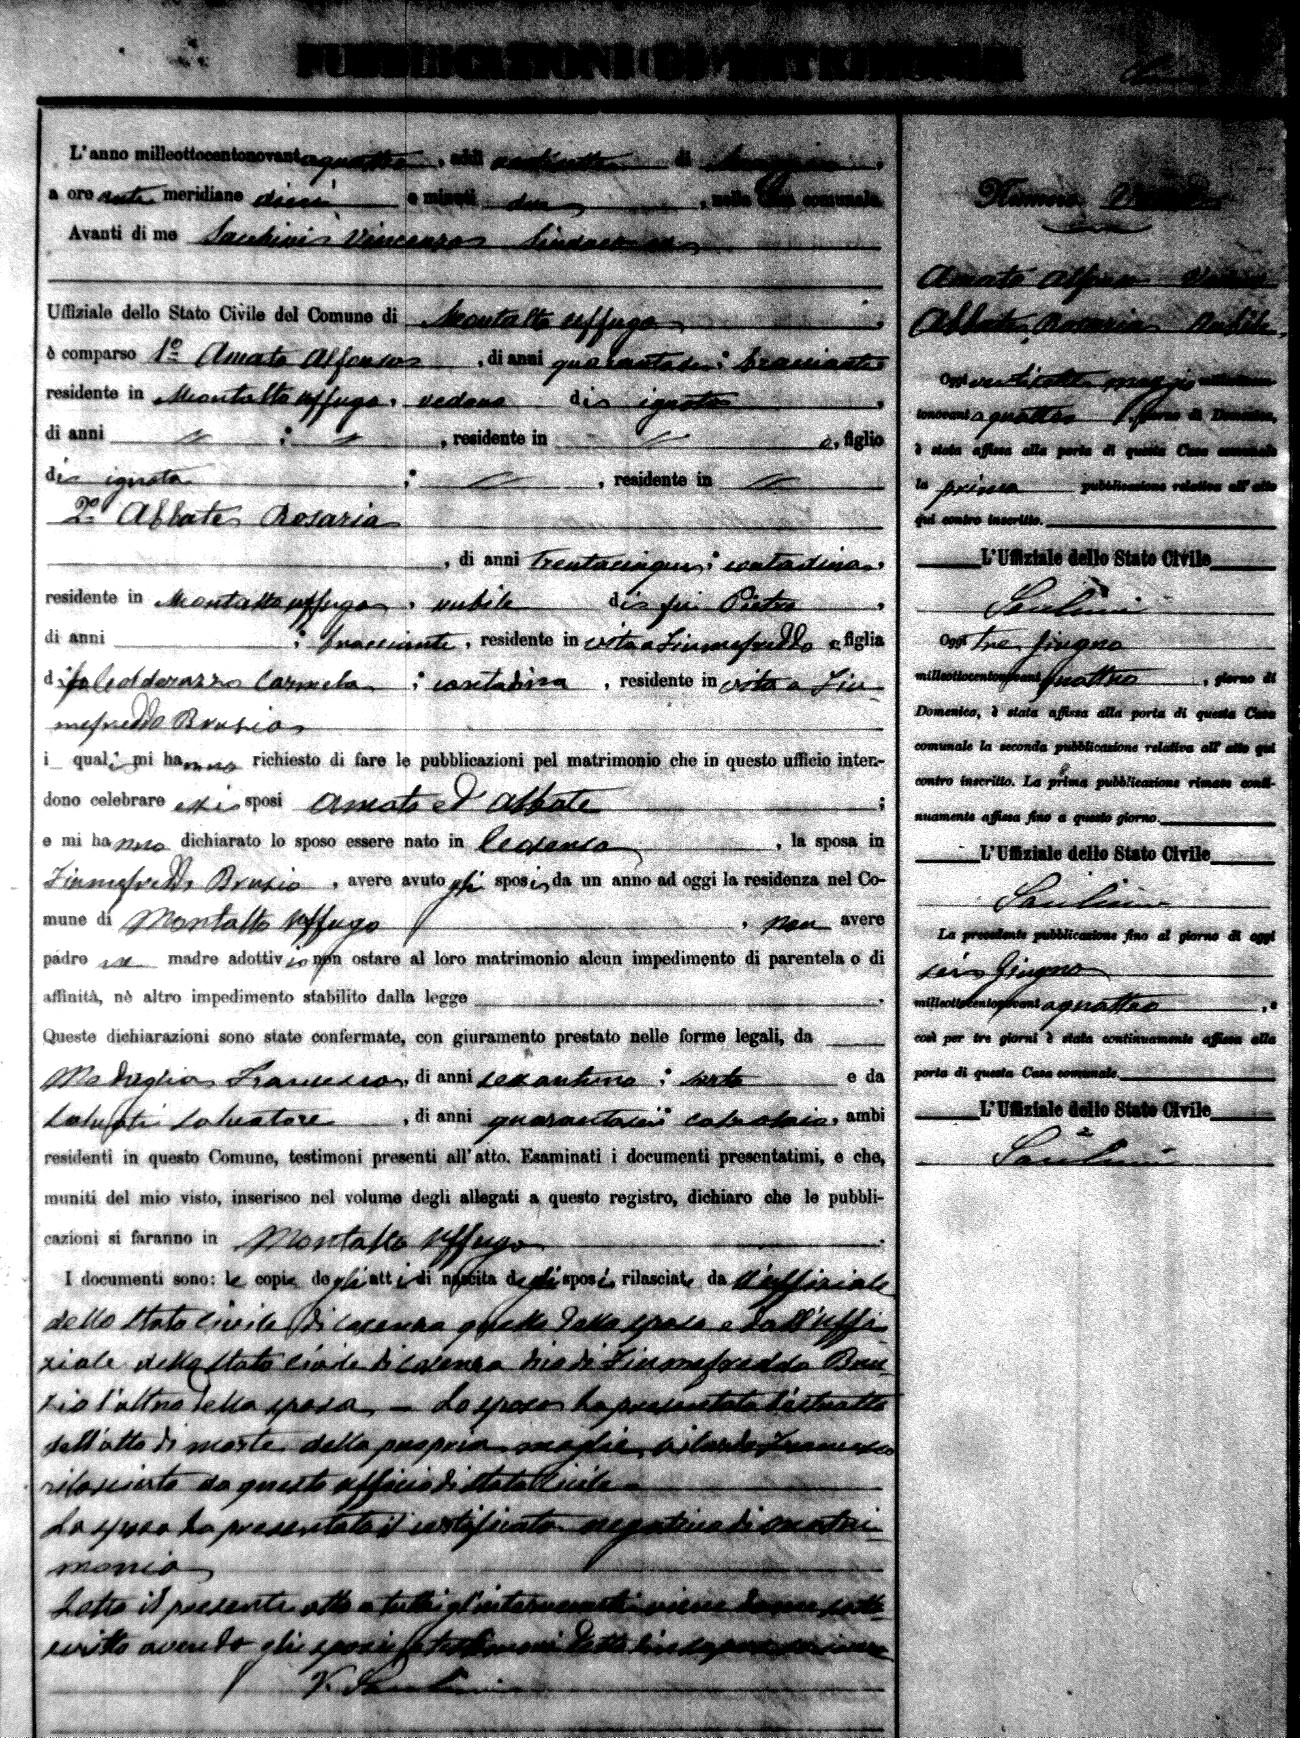 PUBBLICAZIONI DI MATRIMONIO
L'anno milleottocentonovantaquattro, addì ventisette di maggio,
a ore anti meridiane dieci e minuti due, nella Casa comunale.
Avanti di me Vincenzo Sindaco
Uffiziale dello Stato Civile del Comune di Montalto Uffugo
è comparso 1º Amato Alfonso, di anni quarantasei; bracciante
residente in Montalto Uffugo, vedovo di ignoto,
di anni ; , residente in e, figlio
di ignota ; , residente in
2º Abbate Rosaria
, di anni trentacinque; contadina,
residente in Montalto Uffugo, nubile di fu Pietro,
di anni ; bracciante, residente in vita a Fiumefreddo e figlia
di fu Carmela ; contadina, residente in vita a Fiu
mefreddo Bruzio
i quali mi hanno richiesto di fare le pubblicazioni pel matrimonio che in questo ufficio inten-
dono celebrare essi sposi Amato ed Abbate ;
e mi hanno dichiarato lo sposo essere nato in Cosenza, la sposa in
Fiumefreddo Bruzio, avere avuto gli sposi da un anno ad oggi la residenza nel Co-
mune di Montalto Uffugo, non avere
padre ne madre adottivi non ostare al loro matrimonio alcun impedimento di parentela o di
affinità, nè altro impedimento stabilito dalla legge .
Queste dichiarazioni sono state confermate, con giuramento prestato nelle forme legali, da
Francesco, di anni sessantuno; sarto e da
Salvatore, di anni quarantasei; calzolaio, ambi
residenti in questo Comune, testimoni presenti all'atto. Esaminati i documenti presentatimi, e che,
muniti del mio visto, inserisco nel volume degli allegati a questo registro, dichiaro che le pubbli-
cazioni si faranno in Montalto Uffugo.
I documenti sono: le copie degli atti di nascita degli sposi rilasciate da l'uffiziale
dello stato civile di Cosenza quella dello sposo e dall'uffi
ziale dello stato civile di Fiumefreddo Bru
zio l'altra della sposa, — Lo sposo ha presentato l'estratto
dell'atto di morte della propria moglie, Francesca
rilasciato da questo ufficio di stato civile
La sposa ha presentato il certificato negativo di matri
monio
Letto il presente atto a tutti gl'intervenuti viene da me sotto
scritto avendo gli sposi testimoni detto
V.
Numero
Amato Alfonso Vedovo
Abbate Rosaria Nubile,
Oggi ventisette maggio milleottocen-
tonovantaquattro, giorno di Domenica,
è stata affissa alla porta di questa Casa comunale
la prima pubblicazione relativa all'atto
qui contro inscritto.
L'Uffiziale dello Stato Civile
Oggi tre giugno
milleottocentonovantaquattro, giorno di
Domenica, è stata affissa alla porta di questa Casa
comunale la seconda pubblicazione relativa all'atto qui
contro inscritto. La prima pubblicazione rimase conti-
nuamente affissa fino a questo giorno.
L'Uffiziale dello Stato Civile
La precedente pubblicazione fino al giorno di oggi
sei Giugno
milleottocentonovantaquattro, e
così per tre giorni è stata continuamente affissa alla
porta di questa Casa comunale.
L'Uffiziale dello Stato Civile